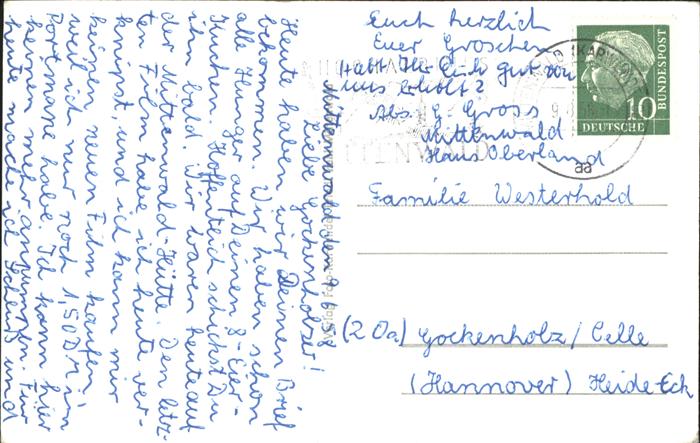 Mittenwald, den 9.6.58
Liebe Gockenholzer!
Heute haben wir Deinen Brief
bekommen. Wir haben schon
alle Hunger auf Deinen 8-Eier-
Kuchen. Hoffentlich schickst Du
ihn bald. Wir waren heute auf
der Mittenwald-Hütte. Den letz-
ten Film habe ich heute ver-
knipst, und ich kann mir
keinen neuen Film kaufen,
weil ich nur noch 1,50 DM im
Portmane habe. Ich kann hier
keinen mehr anpumpen. Für
heute mache ich Schluß und
Euch herzlich
Euer Groschen
Habt Ihr Euch gut von
uns erholt?
Abs. G. Gross
Mittenwald
Haus Oberland
Familie Westerhold
(20a) Gockenholz/Celle
(Hannover) Heide-Eck
10
DEUTSCHE
BUNDESPOST
MITTENWALD
(KARW.)
aa